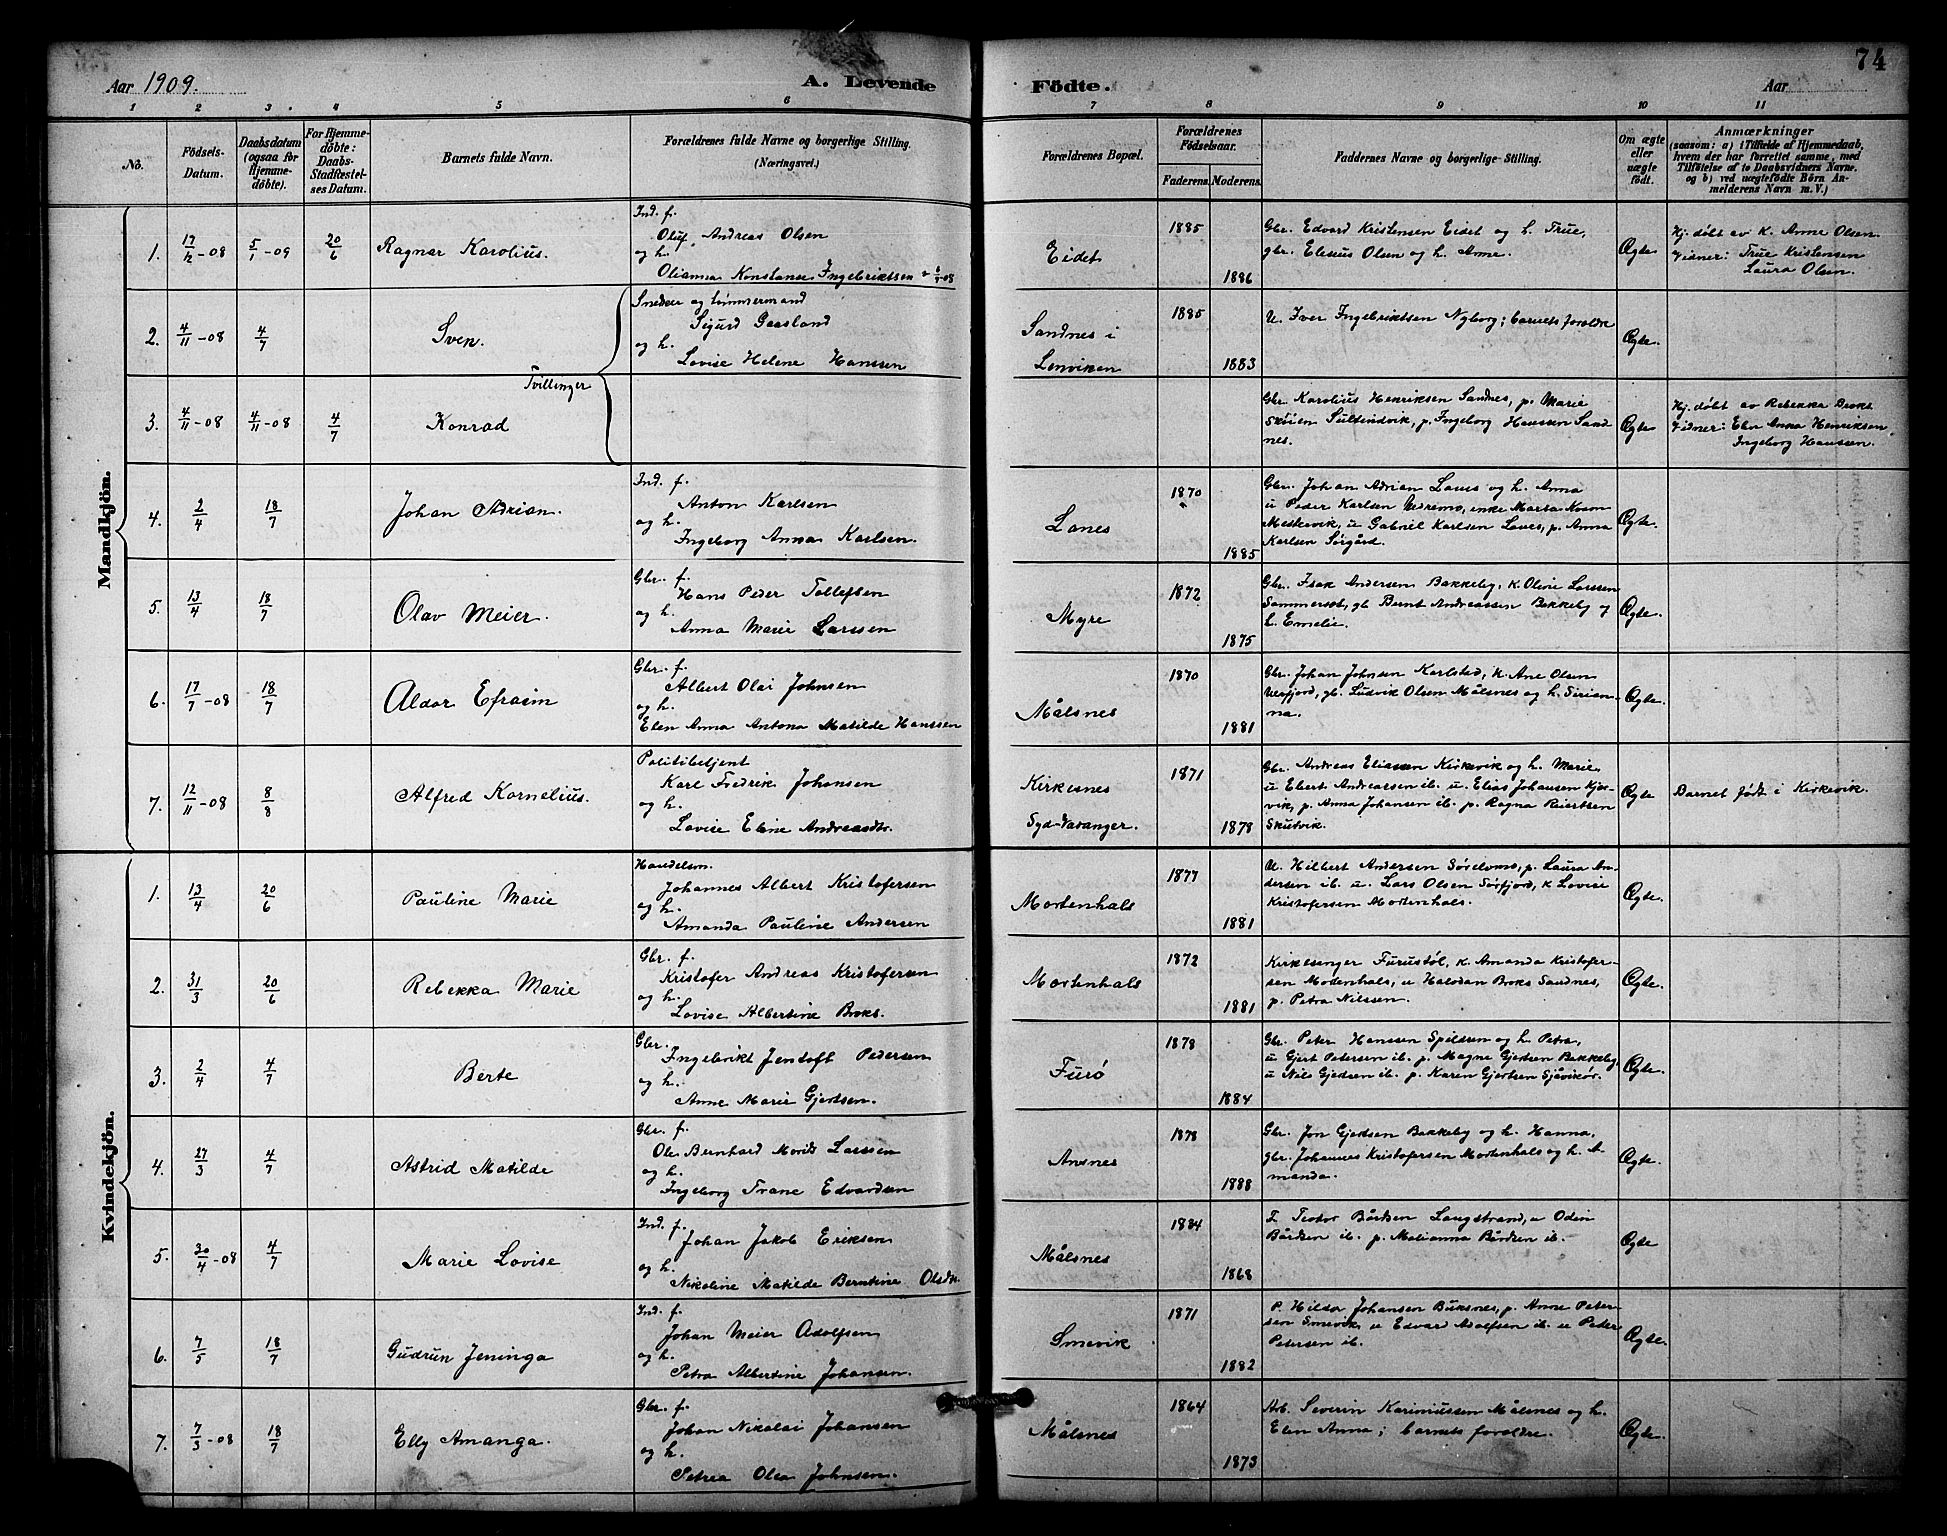 74
Aar 1909.
A. Levende Födte.
Aar
1 2 3 4 5 6 7 8 9 10 11
No.
Födsels-Datum.
Daabsdatum (ogsaa for Hjemmedöbte).
For Hjemmedöbte: Daabs-Stadfæstelses Datum.
Barnets fulde Navn.
Forældrenes fulde Navne og borgerlige Stilling. (Næringsvei.)
Forældrenes Bopæl.
Forældrenes Födselsaar.
Faderens. Moderens.
Faddernes Navne og borgerlige Stilling.
Om ægte eller uægte födt.
Anmærkninger
(saasom: a) i Tilfælde af Hjemmedaab,
hvem der har forrettet samme, med
Tilföielse af to Daabsvidners Navne,
og b) ved uægtefödte Börn An-
melderens Navn m. V.)
Mandkjön.
1. 17/12-08 5/1-09 20/6 Ragnar Karolius.
Ind. f.
Oluf Andreas Olsen
og h.
Olianna Konstanse Ingebriktsen
Eidet 1885 1886
Gbr. Edvard Kristensen Eidet og h. True,
gbr. Elesius Olsen og h. Anne.
Ægte
Hj. döbt av k. Anne Olsen.
Vidner: True Kristensen
Laura Olsen.
2. 4/11-08 4/7 Sven.
Snedker og tömmermand
Sigurd Gaasland
og h.
Lovise Helene Hanssen
Tvillinger
Sandnes i
Lenviken
1885 1883
U. Iver Ingebriktsen Nyborg; barnets foreldre
Ægte.
3. 4/11-08 4/11-08 4/7 Konrad
Gbr. Karolius Henriksen Sandnes, p. Marie
Skören Sultindvik, p. Ingeborg Hanssen Sand
nes.
Ægte
Hj. döbt av Rebekka Broks
Vidner: Elen Anna Henriksen,
Ingeborg Hanssen.
4. 2/4 18/7 Johan Adrian.
Ind. f.
Anton Karlsen
og h.
Ingeborg Anna Karlsen.
Lanes 1870 1885
Gbr. Johan Adrian Lanes og h. Anna
u Peder Karlsen enke Marta
u Gabriel Karlsen Lanes, p. Anna
Karlsen Sörgård.
Ægte.
5. 13/4 18/7 Olav Meier.
Gbr. f.
Hans Peder Tollefsen
og h.
Anna Marie Larssen
Myre 1872 1875
Gbr. Isak Andersen Bakkeby, k. Olive Larssen
Sommerset, gb. Bernt Andreassen Bakkeby og
h. Emelie.
Ægte.
6. 17/7-08 18/7 Aldor Efraim
Gbr. f.
Albert Olai Johnsen
og h.
Elen Anna Antona Matilde Hanssen
Målsnes 1870 1881
Gbr. Johan Johnsen Karlstad, k. Ane Olsen
gb. Ludvik Olsen Målsnes og h. Sirian-
na.
Ægte.
7. 12/11-08 8/8 Alfred Kornelius.
Politibetjent
Karl Fredrik Johansen
og h.
Lovise Eline Andreasdtr.
Kirkesnes
Syd-Varanger.
1871 1878
Gbr. Andreas Eliassen Kirkevik og h. Marie,
u Ebert Andreassen ib. u. Elias Johansen Kjer-
vik, p. Anna Johansen ib. p. Ragna Reiertsen
Skutvik.
Ægte
Barnet født i Kirkevik.
Kvindekjön.
1. 13/4 20/6 Pauline Marie
Handelsm.
Johannes Albert Kristofersen
og h.
Amanda Pauline Andersen
Mortenhals 1877 1881
U. Hilbert Andersen p. Laura An-
dersen ib. u. Lars Olsen Sörfjord, k Lovise
Kristofersen Mortenhals.
Ægte.
2. 31/3 20/6 Rebekka Marie
Gbr. f.
Kristofer Andreas Kristofersen
og h.
Lovise Albertine Broks.
Mortenhals 1872 1881
Kirkesanger Furustöl, k. Amanda Kristofer-
sen Mortenhals, u Halvdan Broks Sandnes,
p. Petra Nilssen.
Ægte.
3. 2/4 4/7 Berte
Gbr.
Ingebrikt Jentoft Pedersen
og h.
Anne Marie Gjertsen.
Furö 1878 1884
Gbr. Peter Hanssen Spildren og h. Petra,
u Gjert Petersen ib. p. Magne Gjertsen Bakkeby,
u Nils Gjertsen ib. p. Karen Gjertsen Sjåvikör.
Ægte.
4. 27/3 4/7 Astrid Matilde
Gbr. f.
Ole Bernhard Larssen
og h.
Ingeborg Trane Edvardsen
Ansnes 1878 1888
Gbr. Jon Gjertsen Bakkeby og h. Hanna,
gbr. Johannes Kristofersen Mortenhals og h. A-
manda.
Ægte.
5. 30/4-08 4/7 Marie Lovise
Ind. f.
Johan Jakob Eriksen
og h.
Nikoline Matilde Berntine Olsdtr.
Målsnes 1884 1868
F. Teodor Bårdsen Langstrand, u Odin
Bårdsen ib. p. Melianna Bårdsen ib.
Ægte
6. 7/5 18/7 Gudrun Jeninga
Ind. f.
Johan Meier Adolfsen
og h.
Petra Albertine Johansen.
Smevik 1871 1882
P. Hilda Johansen Buksnes, p. Anne Peter-
sen Smevik, u Edvard Adolfsen ib. u Peder
Petersen ib.
Ægte.
7. 7/3-08 18/7 Elly Amanga.
Gbr. f.
Johan Nikolai Johansen
og h.
Petrea Olea Johnsen.
Målsnes 1864 1873
Arb. Severin Karinussen Målsnes og h.
Elen Anna; barnets foreldre.
Ægte.